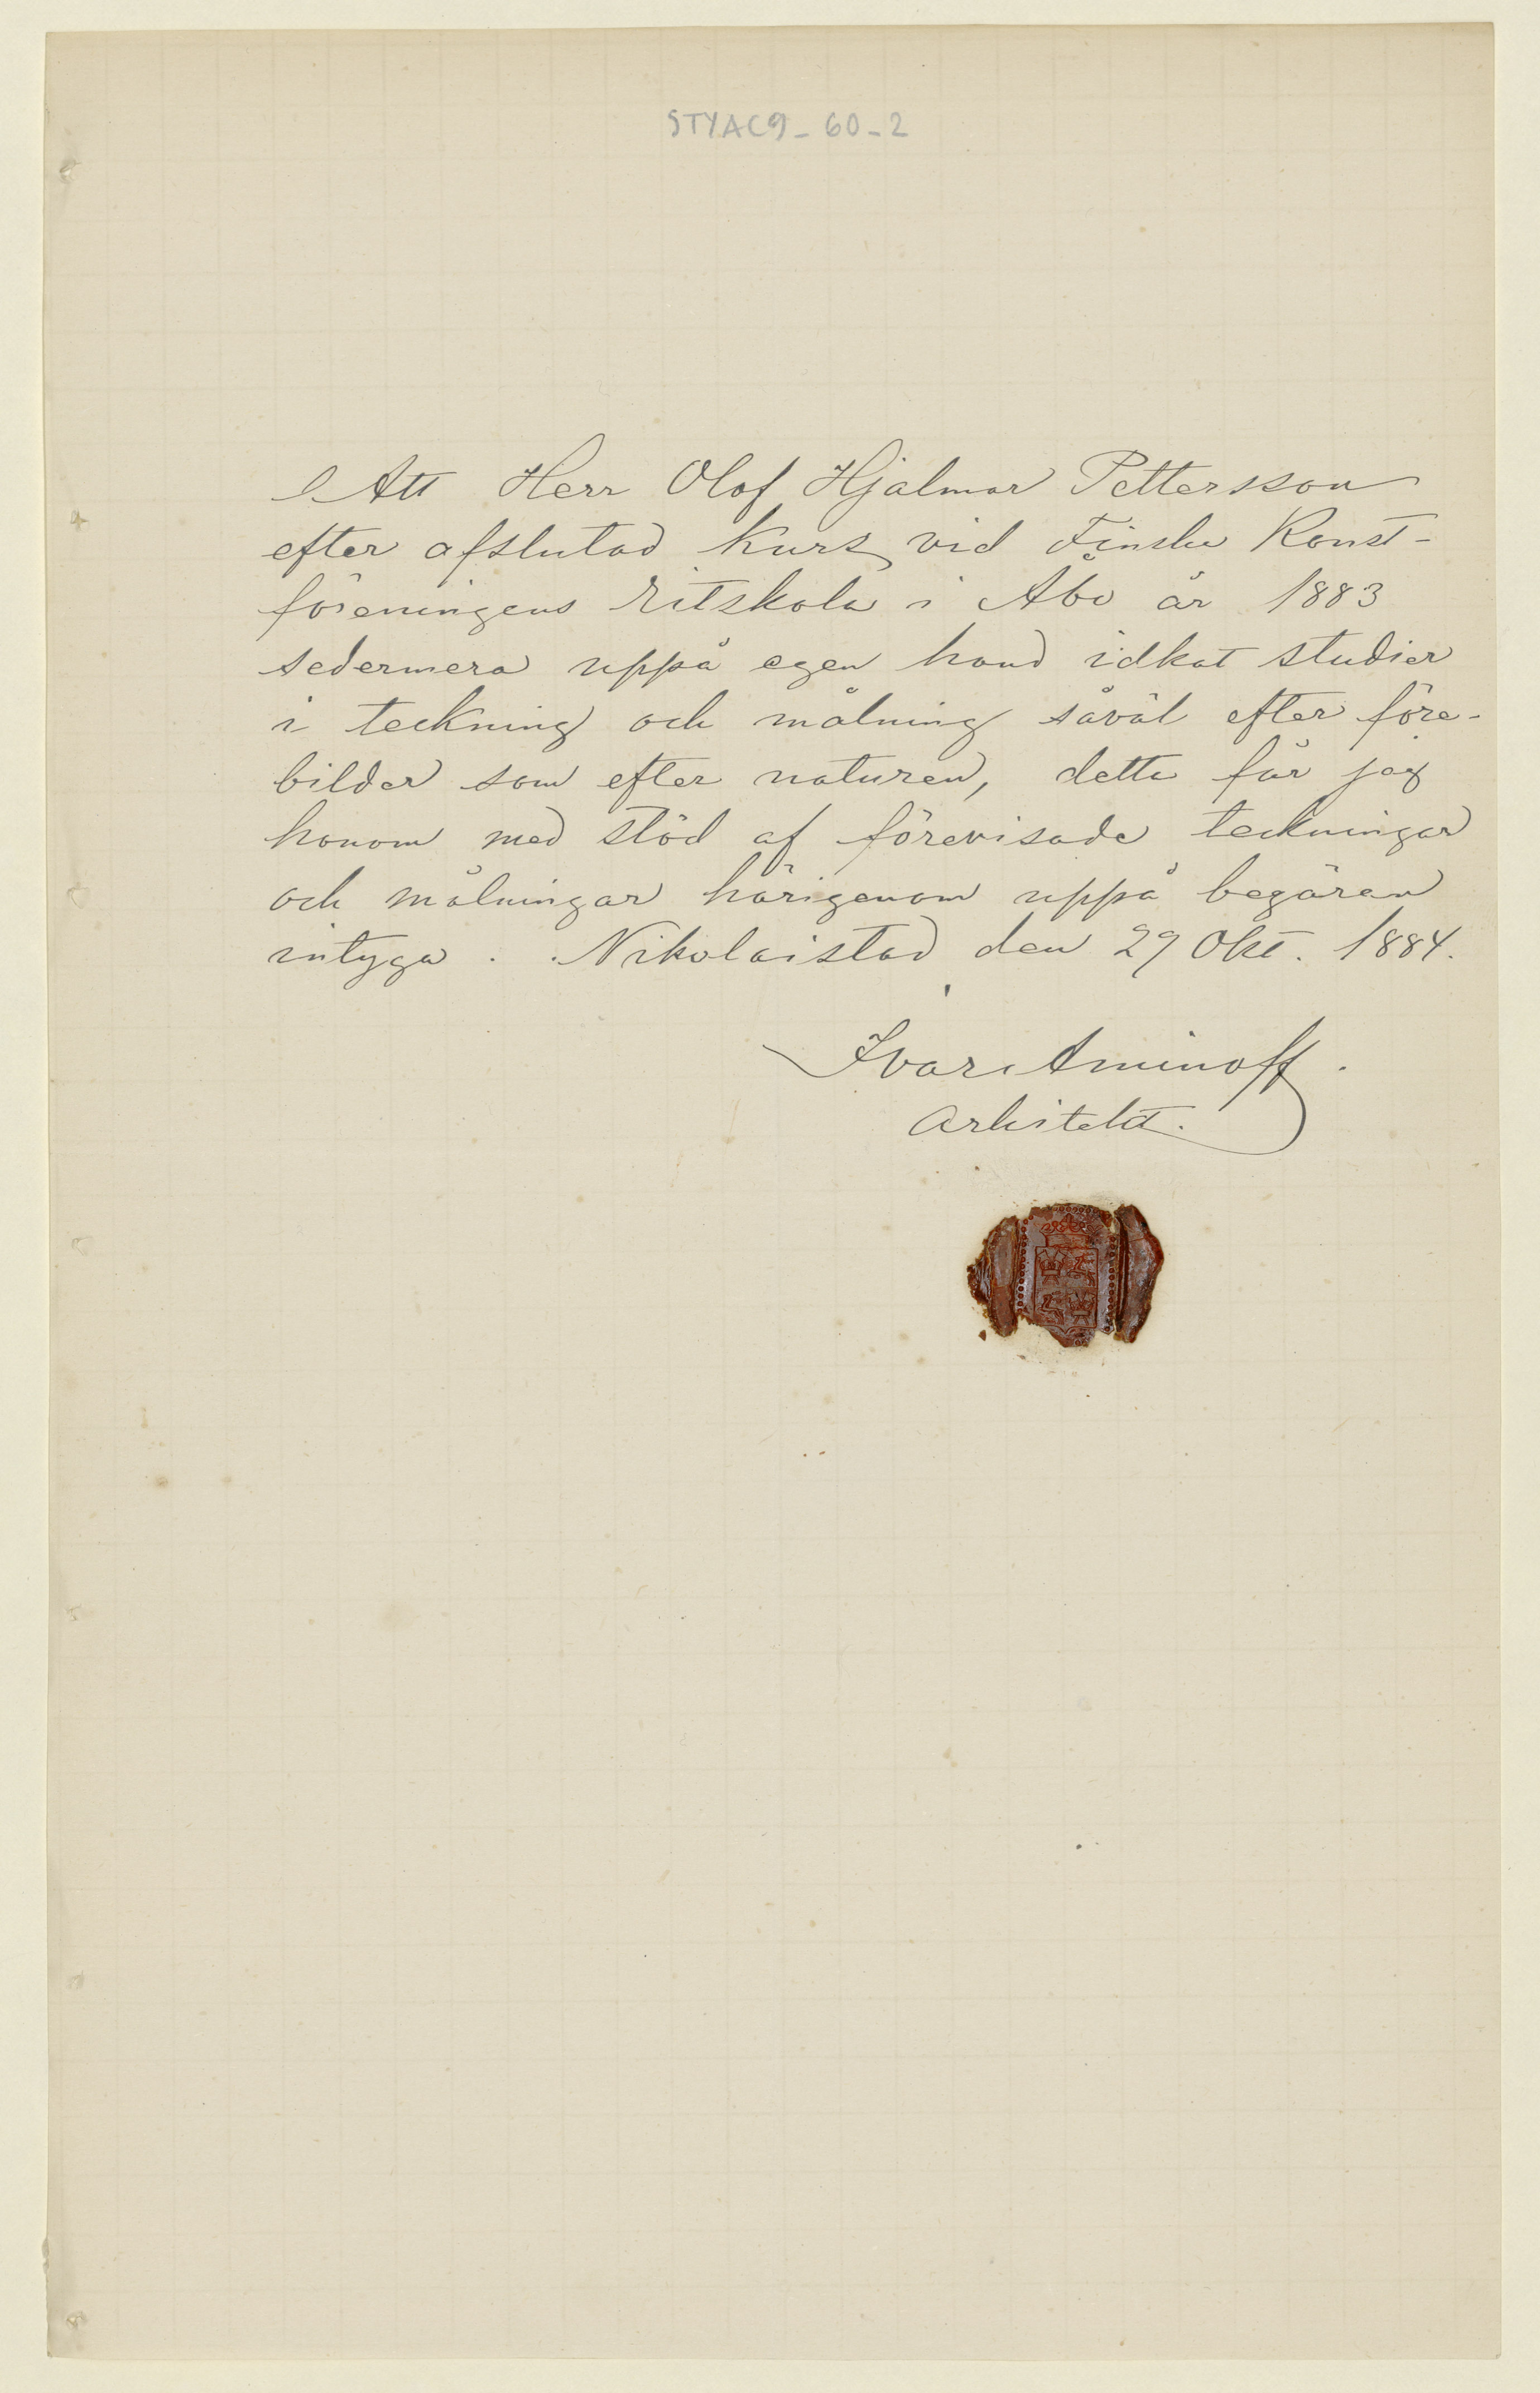 STYAC9_60_2
Att Herr Olof Hjalmar Pettersson
efter afslutad kurs vid Finska Konst-
föreningens ritskola i Åbo år 1883
sedermera uppå egen hand idkat studier
i teckning och målning såväl efter före-
bilder som efter naturen, detta får jag
honom med stöd af förevisade teckningar
och målningar härigenom uppå begäran
intyga. Nikolaistad den 29 Okt. 1884.
Ivar Aminoff.
Arkitekt.